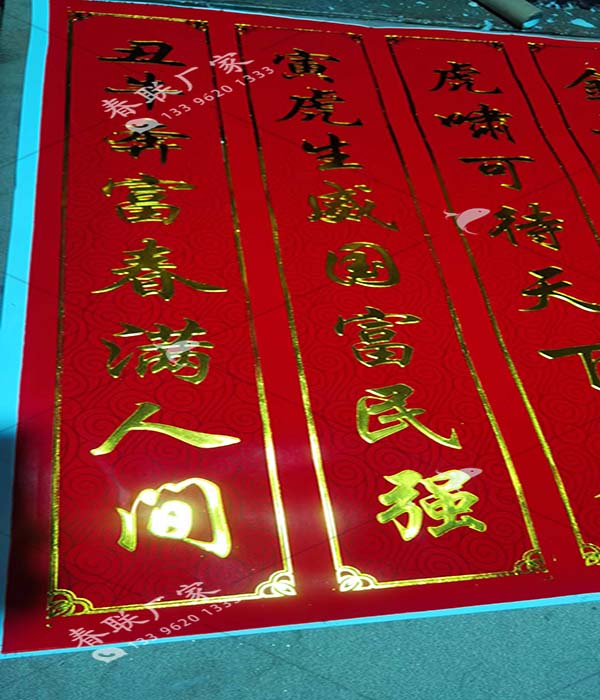 丑牛奔富春满人间
寅虎生威国富民强
虎嘯可待天
春联厂家
133 9620 1333
春联厂家
133 9620 1333